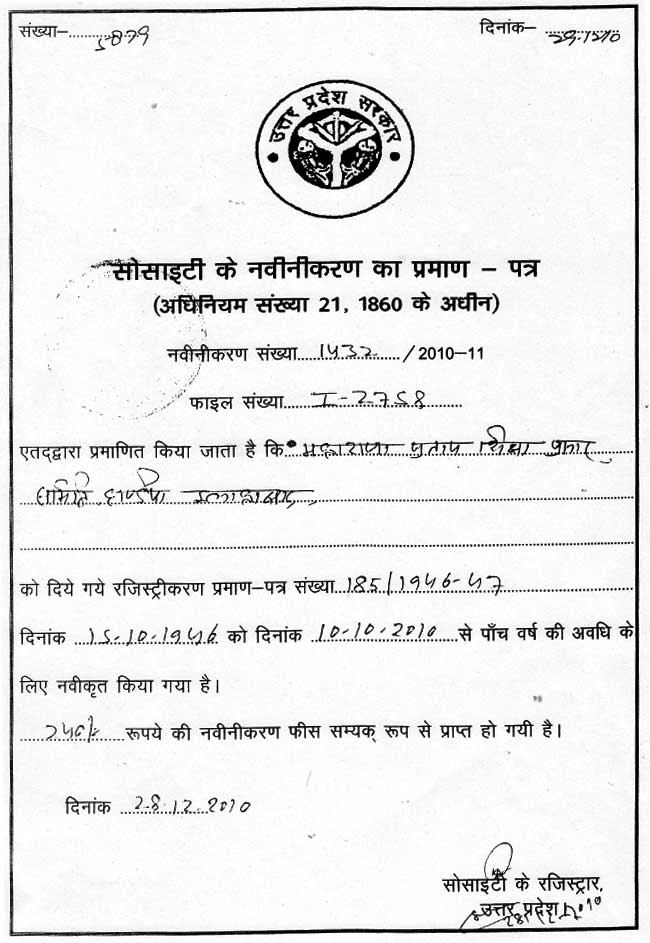 संख्या– 5879 दिनांक– 29.12.10
उत्तर प्रदेश सरकार
सोसाइटी के नवीनीकरण का प्रमाण – पत्र
(अधिनियम संख्या 21, 1860 के अधीन)
नवीनीकरण संख्या 1432 / 2010–11
फाइल संख्या I-2758
एतद्द्वारा प्रमाणित किया जाता है कि महाराणा प्रताप शिक्षा प्रसार
समिति हण्डिया इलाहाबाद
को दिये गये रजिस्ट्रीकरण प्रमाण–पत्र संख्या 185/1946-47
दिनांक 15-10-1946 को दिनांक 10-10-2010 से पाँच वर्ष की अवधि के
लिए नवीकृत किया गया है।
रूपये की नवीनीकरण फीस सम्यक् रूप से प्राप्त हो गयी है।
दिनांक 28.12.2010
सोसाइटी के रजिस्ट्रार,
उत्तर प्रदेश।